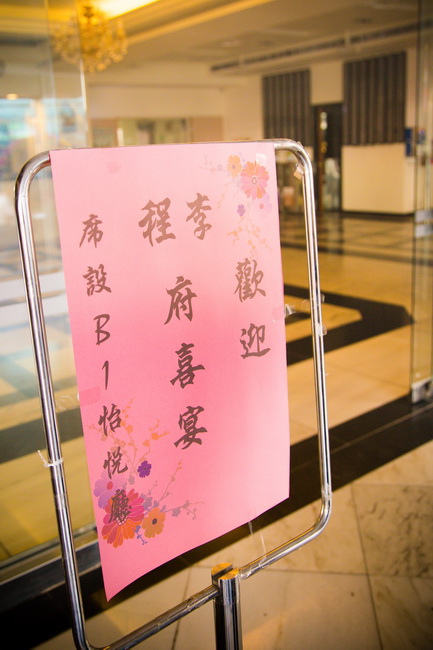 歡迎
李程府喜宴
席設B1怡悅廳